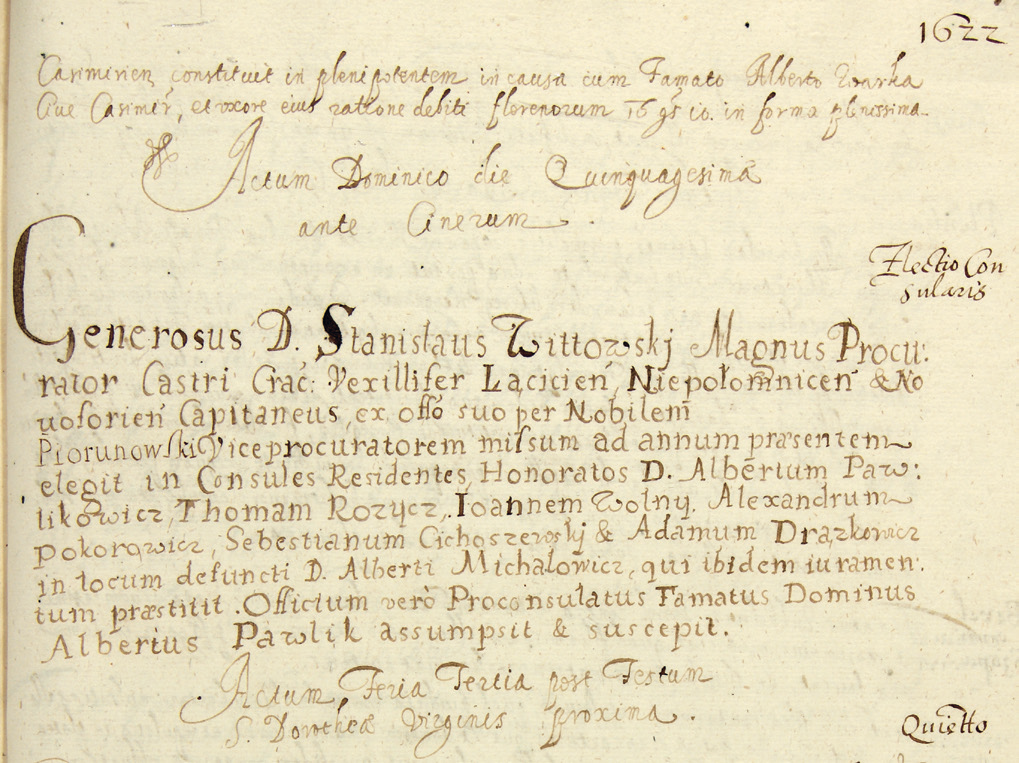 1622
Casimirien̄ constituit in plenipotentem in causa cum Famato Alberto
Cive Casimir̄, et uxore eius ratione debiti florenorum 16 gs 10. in forma plenissima.
Actum Dominico die Quinquagesima
ante Cinerum
Electio Con
sularis
Generosus D. Stanislaus Wittowskj Magnus Procu:
rator Castri Crac: Vexillifer Łącicien̄, Niepołomnicen̄ & No
uosorien̄ Capitaneus, ex offō suo per Nobilem
Piorunowski Viceprocuratorem missum ad annum præsentem
elegit in Consules Residentes, Honoratos D. Albertum Paw:
likowicz, Thomam Rozycz, Ioannem Wolny, Alexandrum
Pokorowicz, Sebestianum Cichoszewskj & Adamum Drązkowicz
in locum defuncti D. Alberti Michałowicz, qui ibidem iuramen:
tum præstitit. Officium verò Proconsulatus Famatus Dominus
Albertus Pawlik assumpsit & suscepit.
Actum Feria Tertia post Festum
S. Dorotheæ Virginis proxima.
Quietto